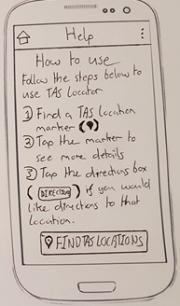 Help
How to use
Follow the steps below to
use TAS Locator
1 Find a TAS Location
marker ( )
2 Tap the marker to
see more details
3 Tap the directions box
(DIRECTIONS) if you would
like directions to that
location.
FIND TAS LOCATIONS